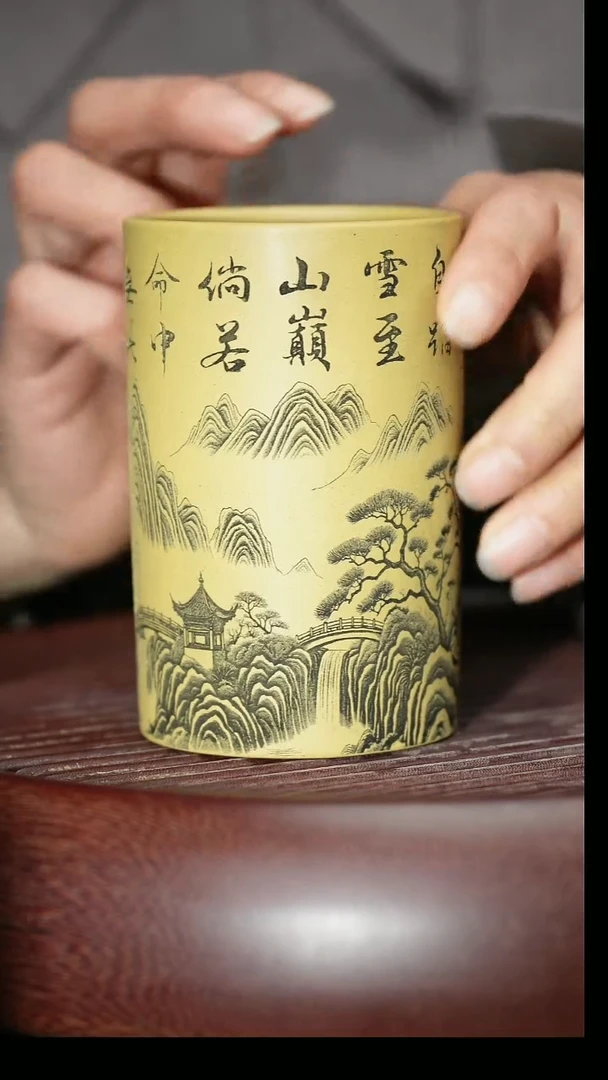 雪至
山巔
倘若
命中